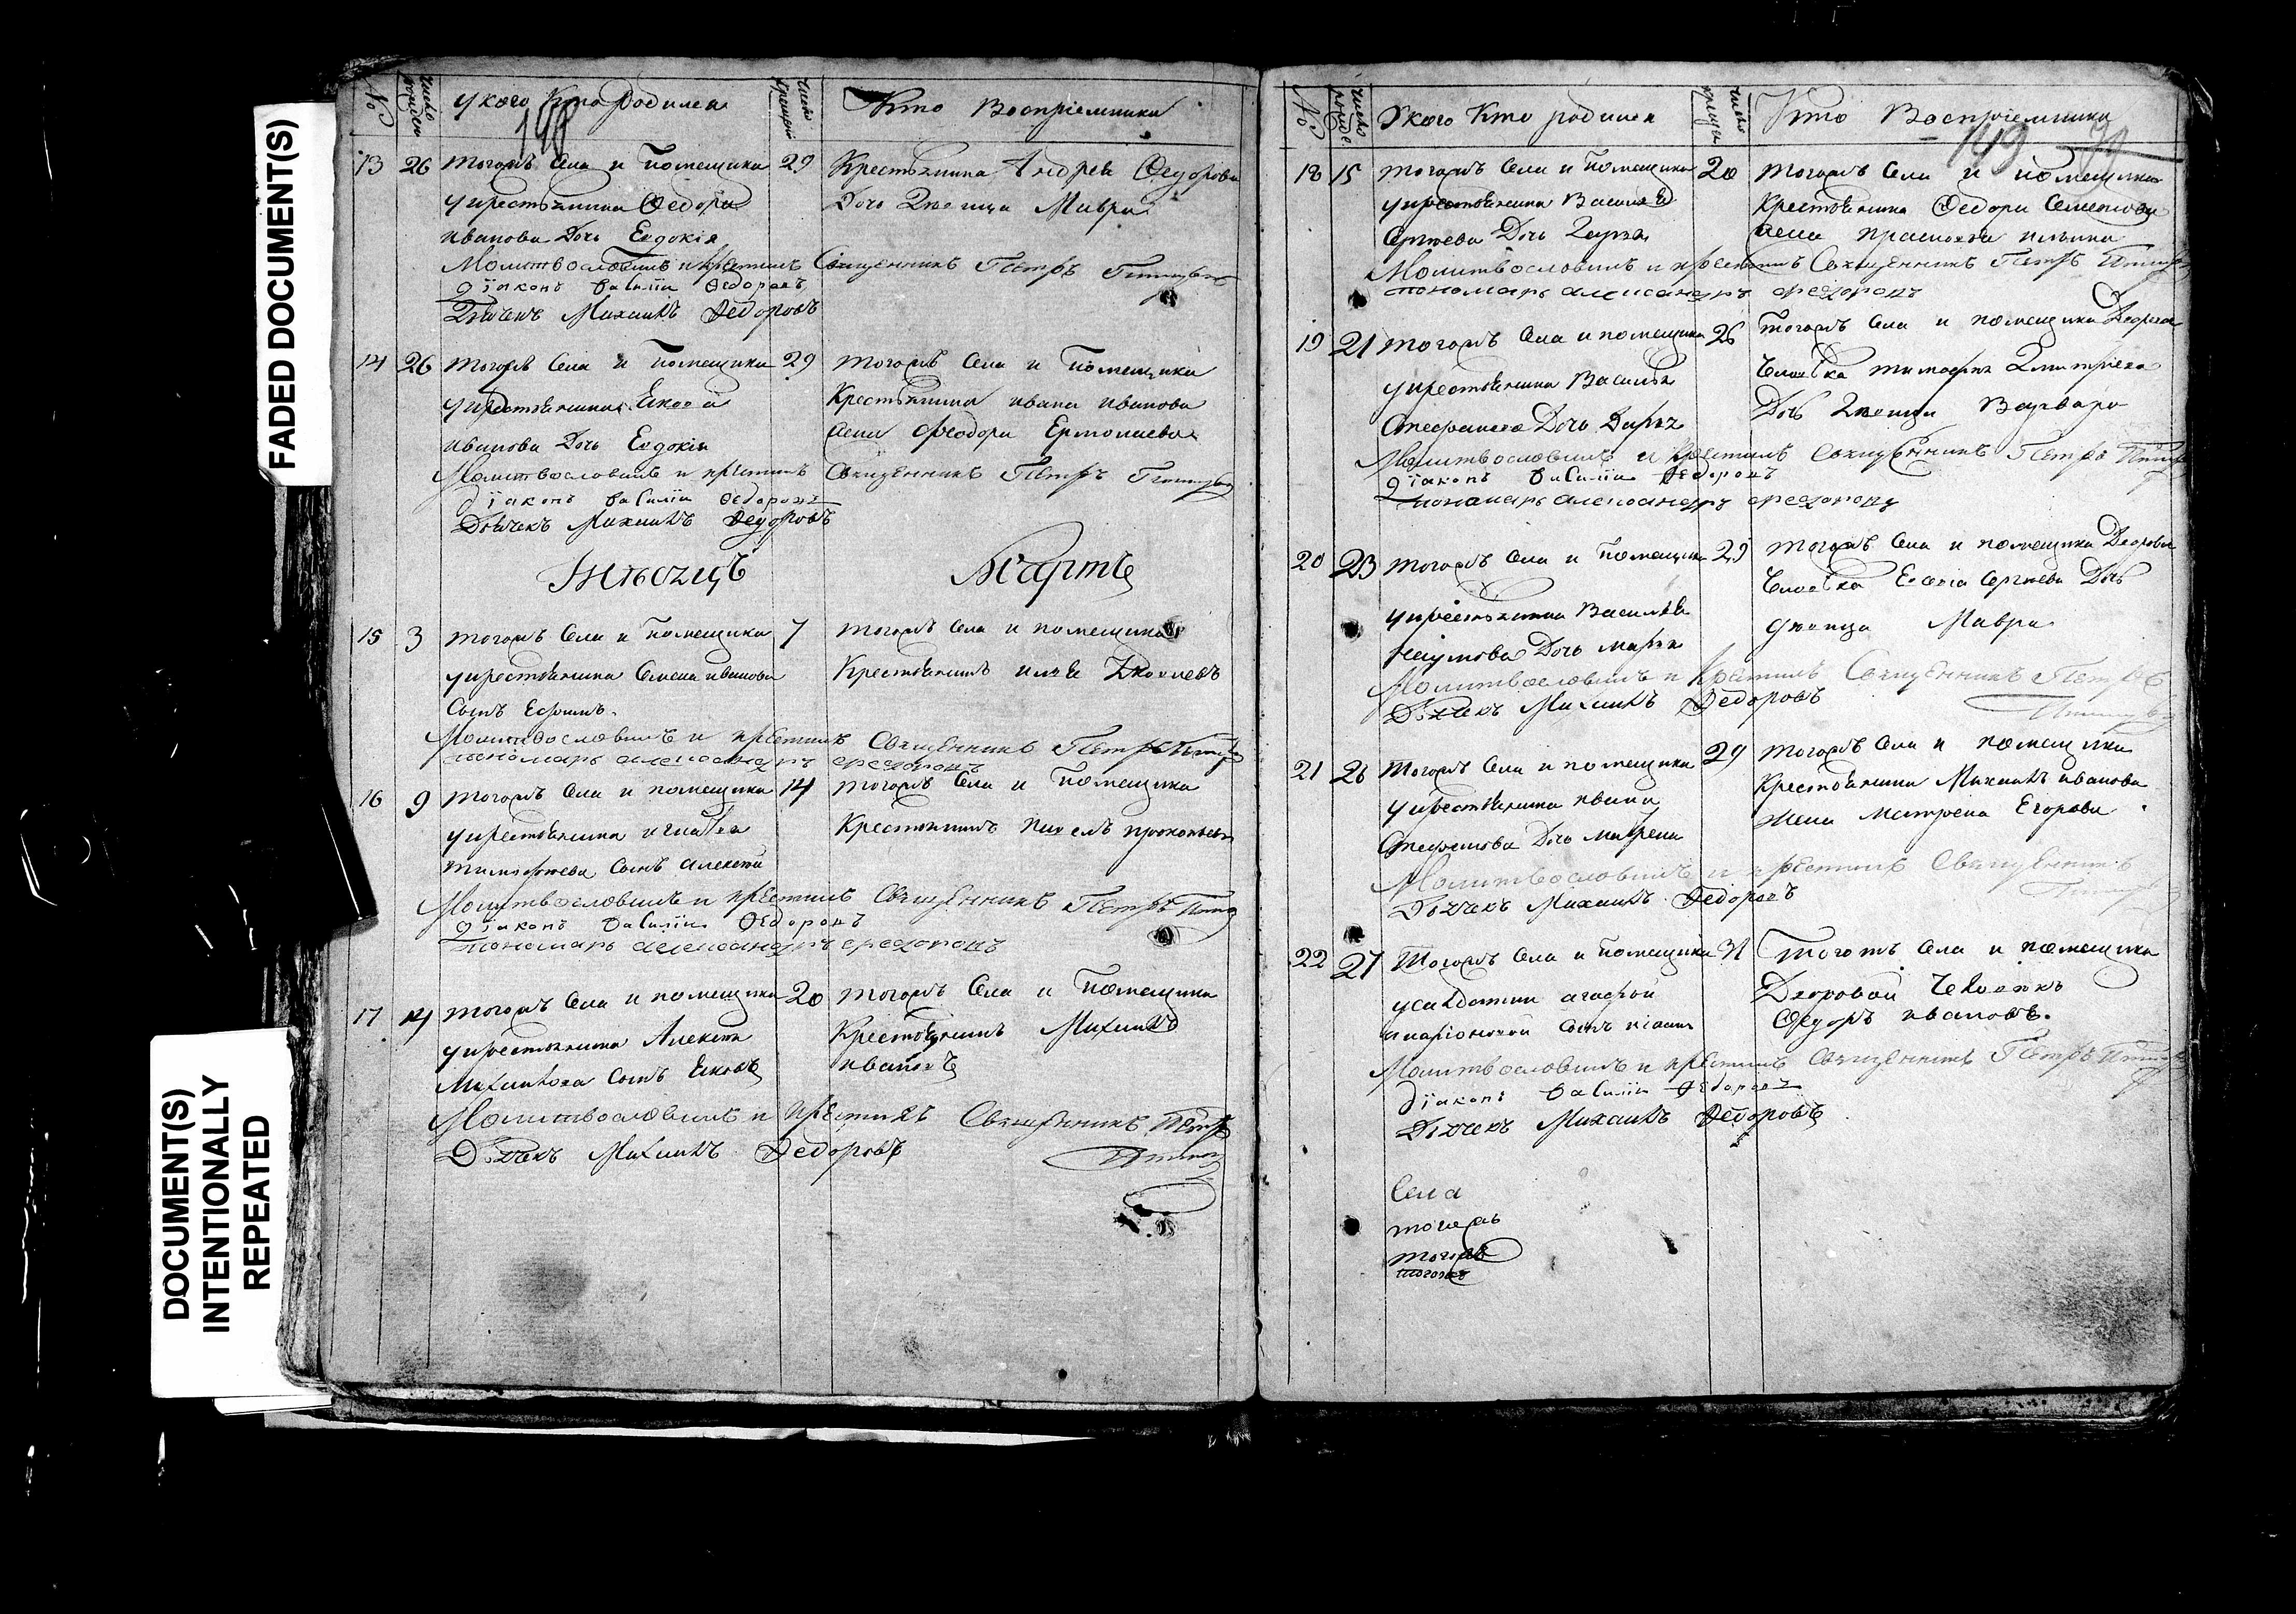 FADED DOCUMENT(S)
DOCUMENT(S)
INTENTIONALLY
REPEATED
№
число рожден
у кого кто родился
число крещения
Кто Восприемники
198
13 26 тогожъ Села и помещика 29 Крестьянина Андрея Федорова
у крестьянина Федора Дочь Девица Мавра
иванова Дочь Евдокія
Молитвословилъ и крестилъ Священникъ Петръ
діаконъ Василіи Федоровъ
Дьячекъ Михаилъ Федоровъ
14 26 тогожъ Села и помещика 29 тогожъ Села и помещика
у крестьянина Крестьянина ивана иванова
иванова Дочь Евдокія жена Феодора Ермолаева
Молитвословилъ и крестилъ Священникъ Петръ
діаконъ Василіи Федоровъ
Дьячекъ Михаилъ Федоровъ
Мѣсяцъ Мартъ
15 3 тогожъ Села и помещика 7 тогожъ Села и помещика
у крестьянина Семена иванова Крестьянинъ илья Яковлевъ
Сынъ Ефимъ
Молитвословилъ и крестилъ Священникъ Петръ
пономарь александръ федоровъ
16 9 тогожъ Села и помещика 14 тогожъ Села и помещика
у крестьянина игнатья Крестьянинъ прокопьевъ
тимофеева Сынъ алексей
Молитвословилъ и крестилъ Священникъ Петръ
діаконъ Василіи Федоровъ
пономарь александръ федоровъ
17 14 тогожъ Села и помещика 20 тогожъ Села и помещика
у крестьянина Алексея Крестьянинъ Михаилъ
Михаилова Сынъ Яковъ ивановъ
Молитвословилъ и крестилъ Священникъ Петръ
Дьячекъ Михаилъ Федоровъ
№
число рожде
У кого кто родился
число креще
Кто Восприемники
199
18 15 тогожъ Села и помещика 20 тогожъ Села и помещика
у крестьянина Василья Крестьянина Федора Семенова
Сергеева Дочь Дарья жена прасковья ильина
Молитвословилъ и крестилъ Священникъ Петръ
пономарь александръ федоровъ
19 21 тогожъ Села и помещика 26 тогожъ Села и помещика Дворова
у крестьянина Василья Человека тимофея Дмитриева
Стефанова Дочь Дарья Дочь Девица Варвара
Молитвословилъ и крестилъ Священникъ Петръ
діаконъ Василіи Федоровъ
пономарь александръ федоровъ
20 23 тогожъ Села и помещика 29 тогожъ Села и помещика Дворова
у крестьянина Василья Человека Сергеева Дочь
наумова Дочь марья девица Мавра
Молитвословилъ и крестилъ Священникъ Петръ
Дьячекъ Михаилъ Федоровъ
21 26 тогожъ Села и помещика 29 тогожъ Села и помещика
у крестьянина ивана Крестьянина Михаила иванова
Стефанова Дочь матрена жена матрена Егорова
Молитвословилъ и крестилъ Священникъ
Дьячекъ Михаилъ Федоровъ
22 27 тогожъ Села и помещика 31 тогожъ Села и помещика
у салдатки агафьи Дворовой Человекъ
иларионовой Сынъ Федоръ ивановъ.
Молитвословилъ и крестилъ Священникъ Петръ
діаконъ Василіи Федоровъ
Дьячекъ Михаилъ Федоровъ
Села
тогожъ
тогожъ
тогожъ